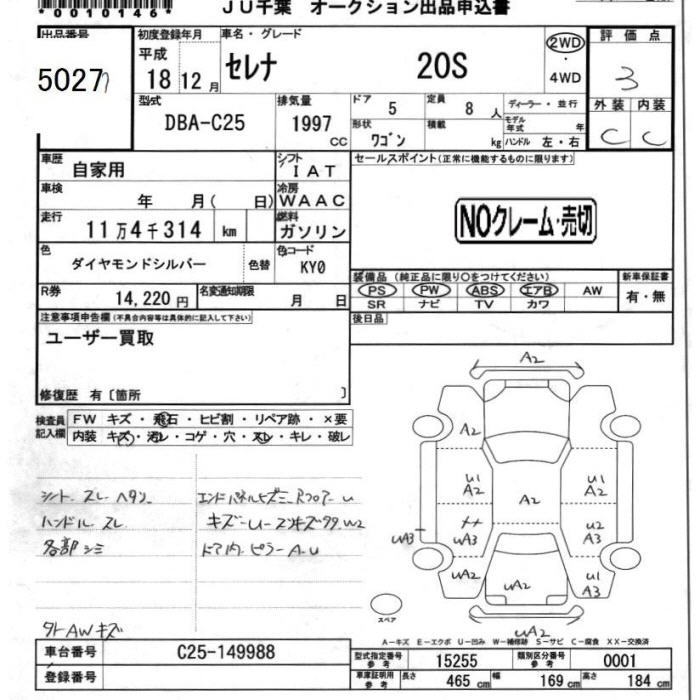 *0010146*
JU千葉 オークション出品申込書
出品番号
5027
初度登録年月
平成
18 12 月
車名・グレード
セレナ 20S
2WD
・
4WD
評価点
3
外装 内装
C C
型式
DBA-C25
排気量
1997 CC
ドア 5
定員 8 人
形状 ワゴン
積載 kg
ディーラー・並行
モデル年式 年
ハンドル 左・右
車歴 自家用
シフト IAT
車検 年 月( 日)
冷房 WAAC
走行 11万4千314 km
燃料 ガソリン
色 ダイヤモンドシルバー 色替
色コード KY0
R券 14,220円
名変通知期限 月 日
セールスポイント(正常に機能するものに限ります)
NOクレーム・売切
装備品(純正品に限り○をつけてください)
PS PW ABS エアB AW
SR ナビ TV カワ
新車保証書
有・無
後日品
注意事項申告欄(不具合内容等は具体的に記入して下さい)
ユーザー買取
修復歴 有〔箇所 〕
検査員記入欄
FW キズ・飛石・ヒビ割・リペア跡・×要
内装 キズ・汚レ・コゲ・穴・スレ・キレ・破レ
シート スレ ヘタリ
ハンドル スレ
各部 シミ
外AWキズ
A2
A2
U1
A2
A2
U1
A2
UA3
UA3
U2
A3
UA2
UA2
U1
A3
UA2
スペア
A−キズ E−エクボ U−凹み W−補修跡 S−サビ C−腐食 XX−交換済
車台番号 C25-149988
登録番号
型式指定番号 参考 15255
類別区分番号 参考 0001
車庫証明用 参考
長さ 465 cm
幅 169 cm
高さ 184 cm